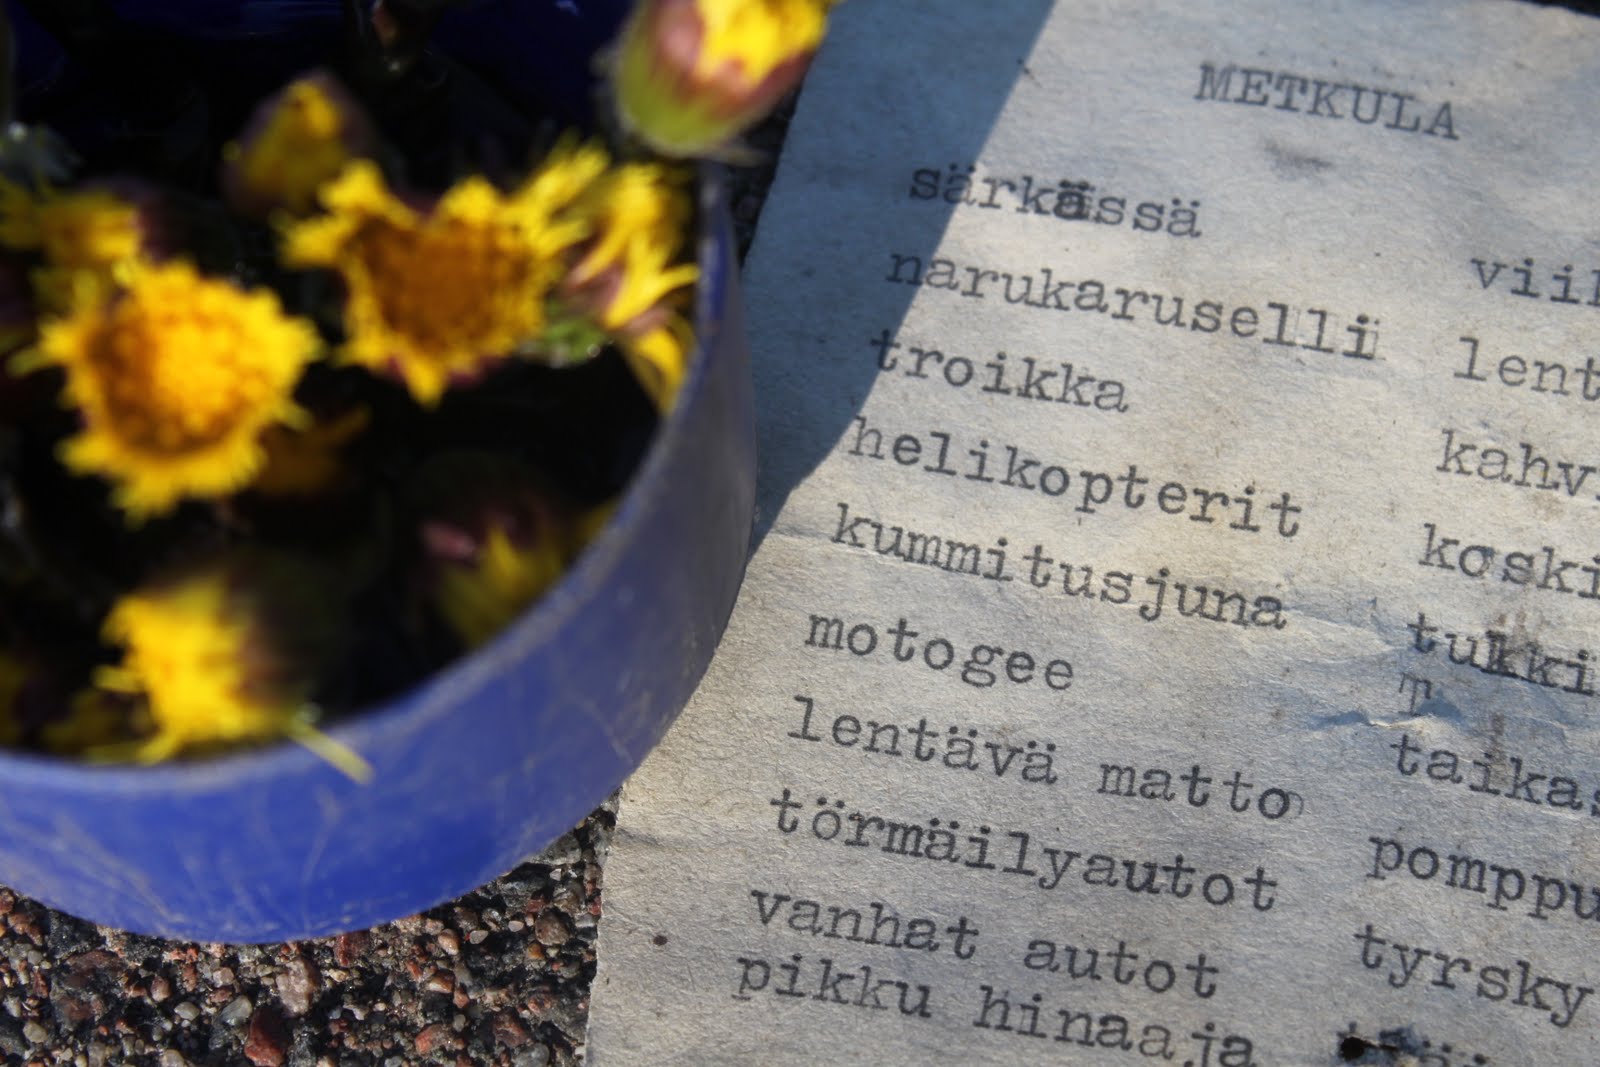 METKULA
särkässä
narukaruselli
troikka
helikopterit
kummitusjuna
motogee
lentävä matto
törmäilyautot
vanhat autot
pikku hinaaja
viik
lent
kahv
koski
tukki
T
taikas
pomppu
tyrsky